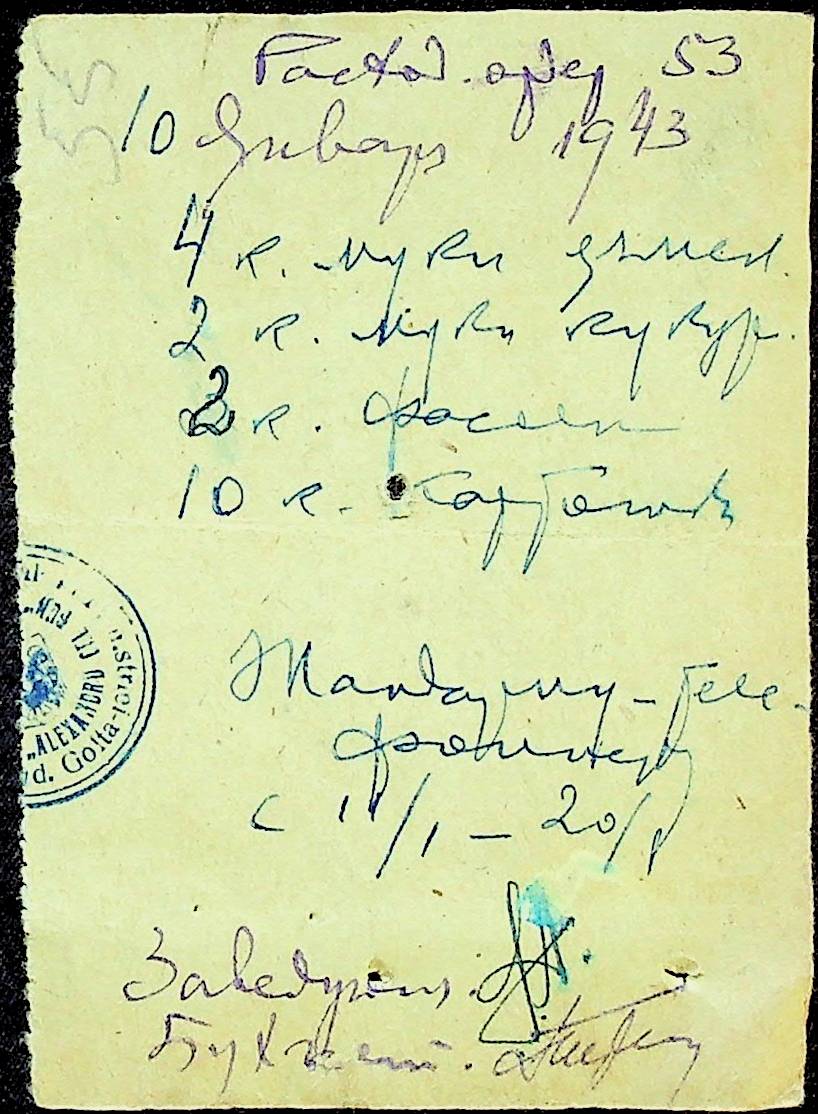 Расход. ордер 53
10 Январ 1943
4 к. муки ячмен.
2 к. муки кукур.
2 к. фасоли
10 к. картошк
Жандарму-теле-
фонисту
с 11/I – 20/I
Заведующ.
Бухгалт.
"ALEXANDRU
d. Golta